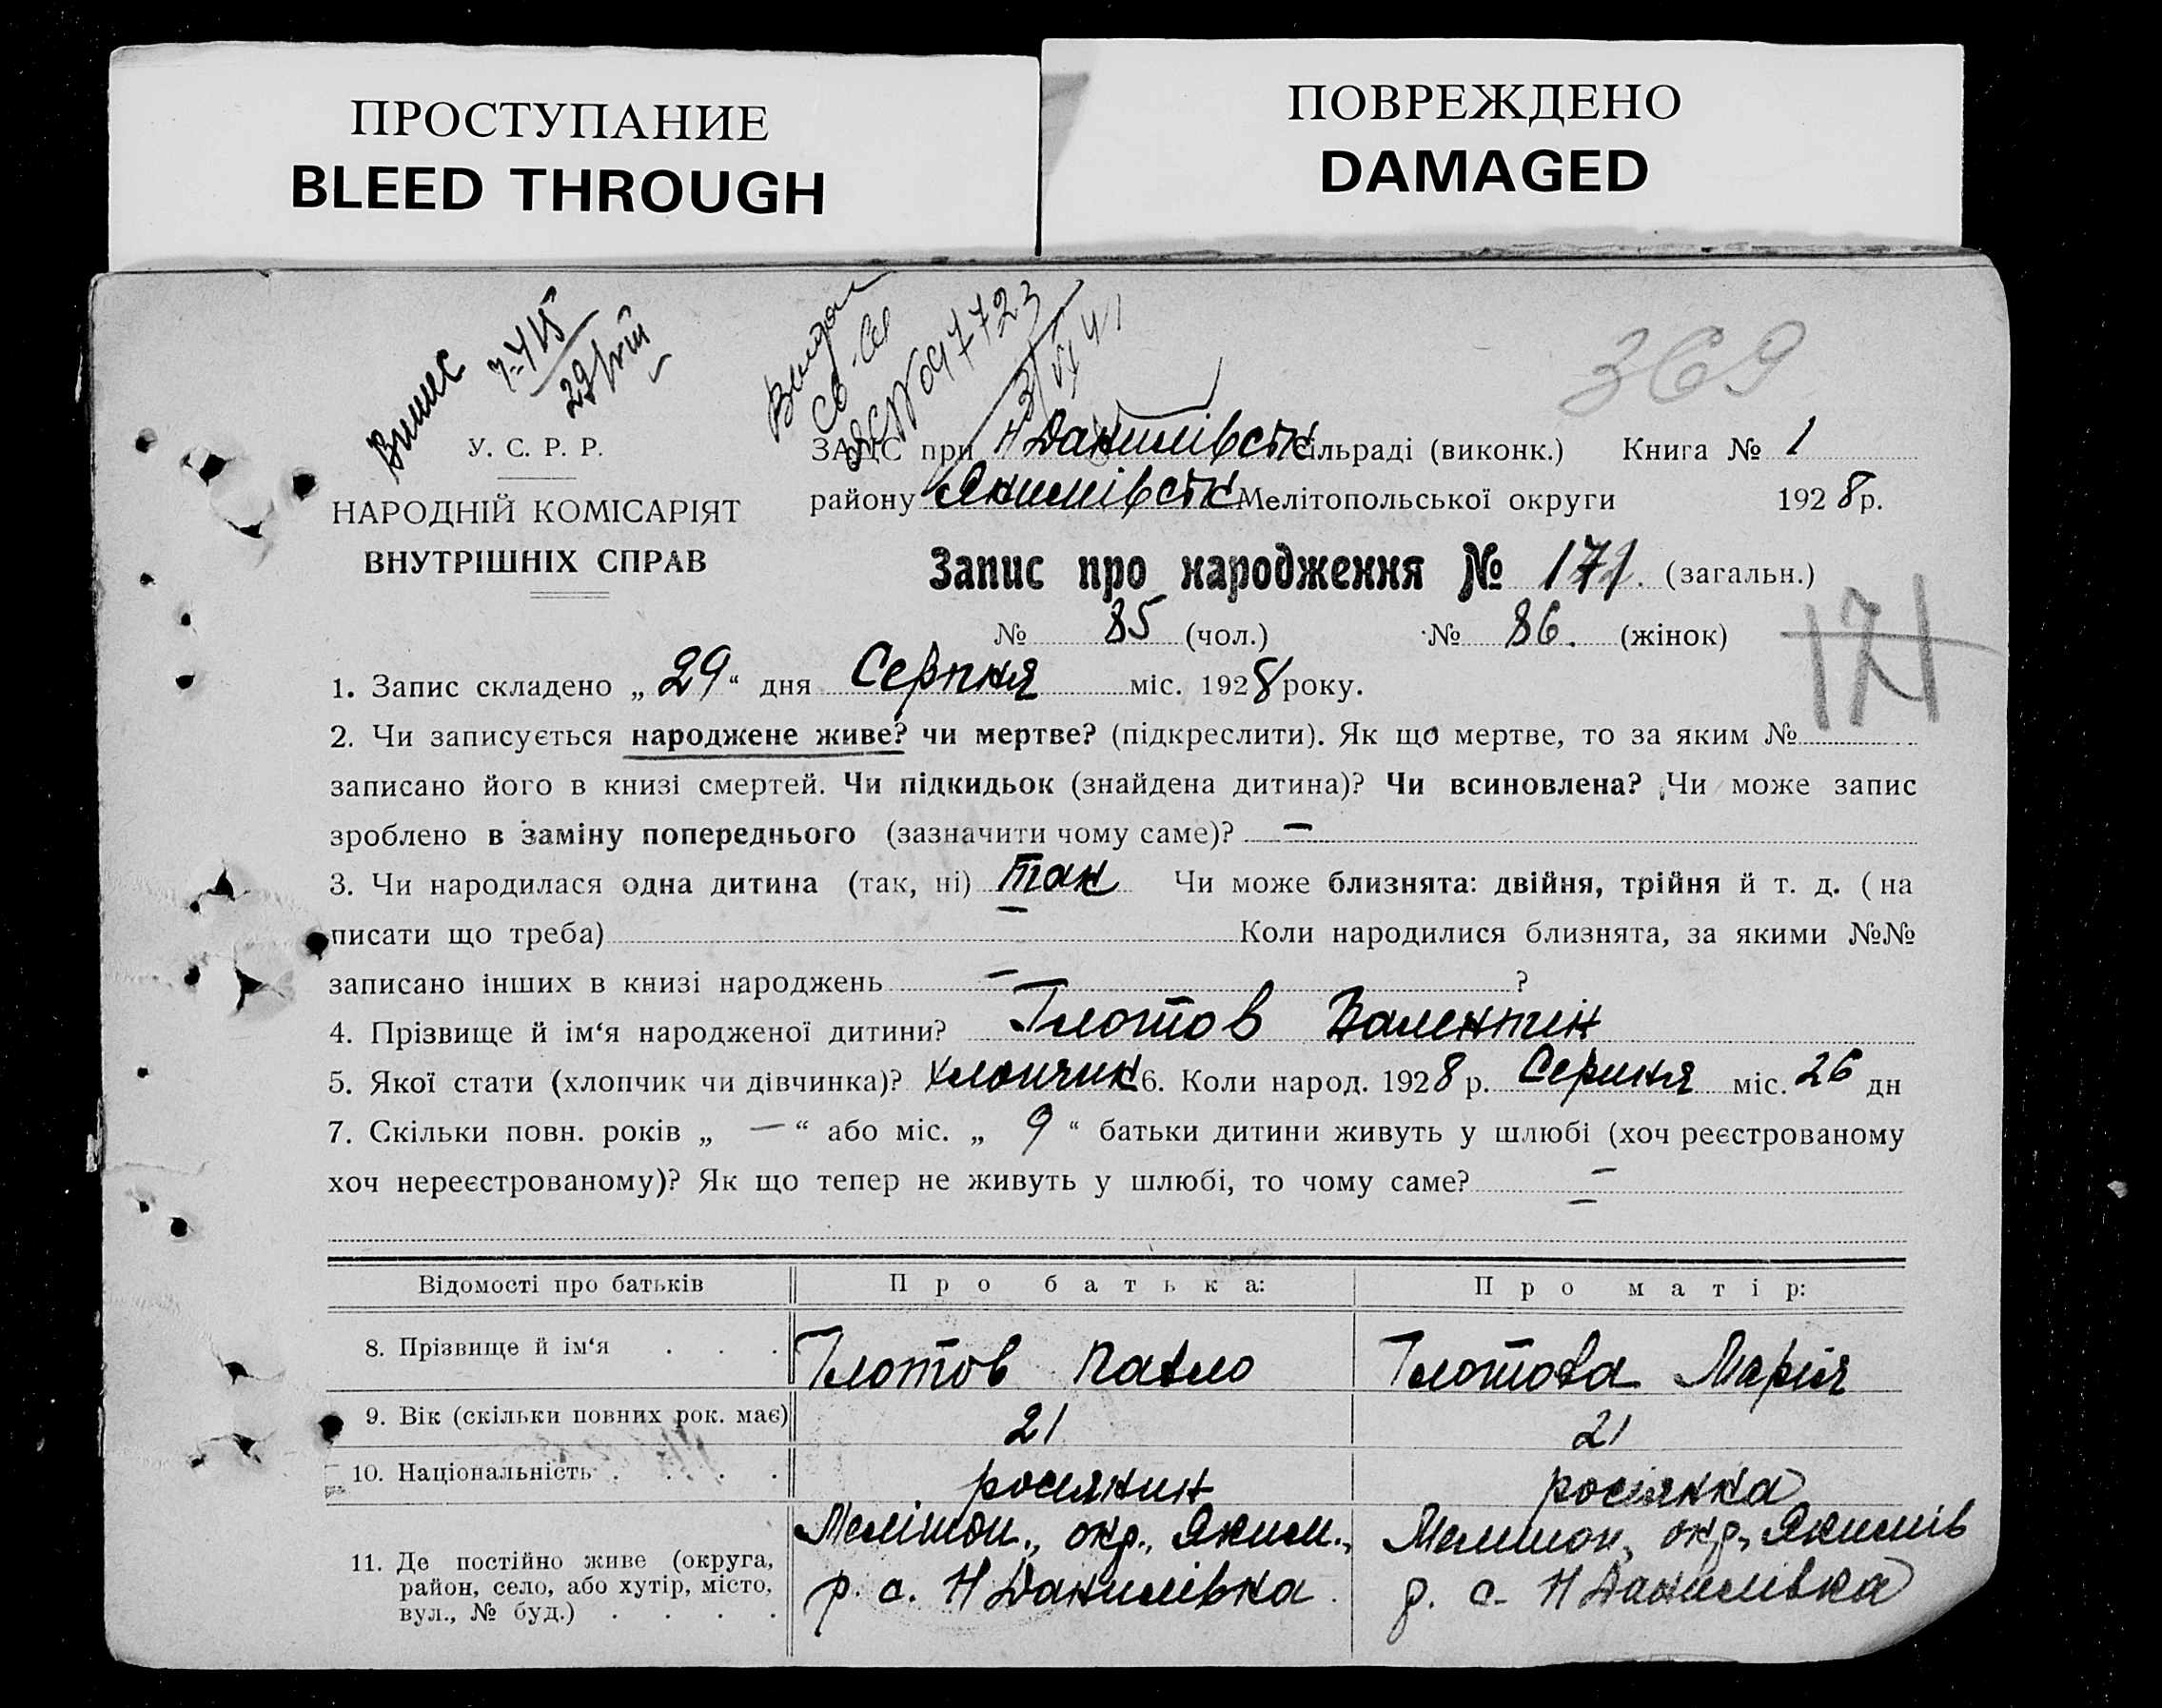 ПРОСТУПАНИЕ
BLEED THROUGH
ПОВРЕЖДЕНО
DAMAGED
369
У. С. Р. Р.
НАРОДНІЙ КОМІСАРІЯТ
ВНУТРІШНІХ СПРАВ
ЗАГС при Н Данилівськ сільраді (виконк.) Книга № 1
району Якимівськ Мелітопольської округи 1928 р.
Запис про народження № 171 (загальн.)
171
№ 85 (чол.) № 86. (жінок)
1. Запис складено „ 29 “ дня Серпня міс. 1928 року.
2. Чи записується народжене живе? чи мертве? (підкреслити). Як що мертве, то за яким №
записано його в книзі смертей. Чи підкидьок (знайдена дитина)? Чи всиновлена? Чи може запис
зроблено в заміну попереднього (зазначити чому саме)? —
3. Чи народилася одна дитина (так, ні) так Чи може близнята: двійня, трійня й т. д. (на
писати що треба) — Коли народилися близнята, за якими №№
записано інших в книзі народжень — ?
4. Прізвище й ім‘я народженої дитини? Глотов Валентін
5. Якої стати (хлопчик чи дівчинка)? хлопчик 6. Коли народ. 1928 р. Серпня міс. 26 дн
7. Скільки повн. років „ — “ або міс. „ 9 “ батьки дитини живуть у шлюбі (хоч реєстрованому
хоч нереєстрованому)? Як що тепер не живуть у шлюбі, то чому саме? —
Відомості про батьків Про батька: Про матір:
8. Прізвище й ім‘я . . . Глотов Павло Глотова Марія
9. Вік (скільки повних рок. має) 21 21
10. Національність . . . . росіянин росіянка
11. Де постійно живе (округа, Мелітоп., окр., Яким., Мелітоп., окр., Якимів
район, село, або хутір, місто, р. с. Н Данилівка р. с. Н Данилівка
вул., № буд.) . . . .